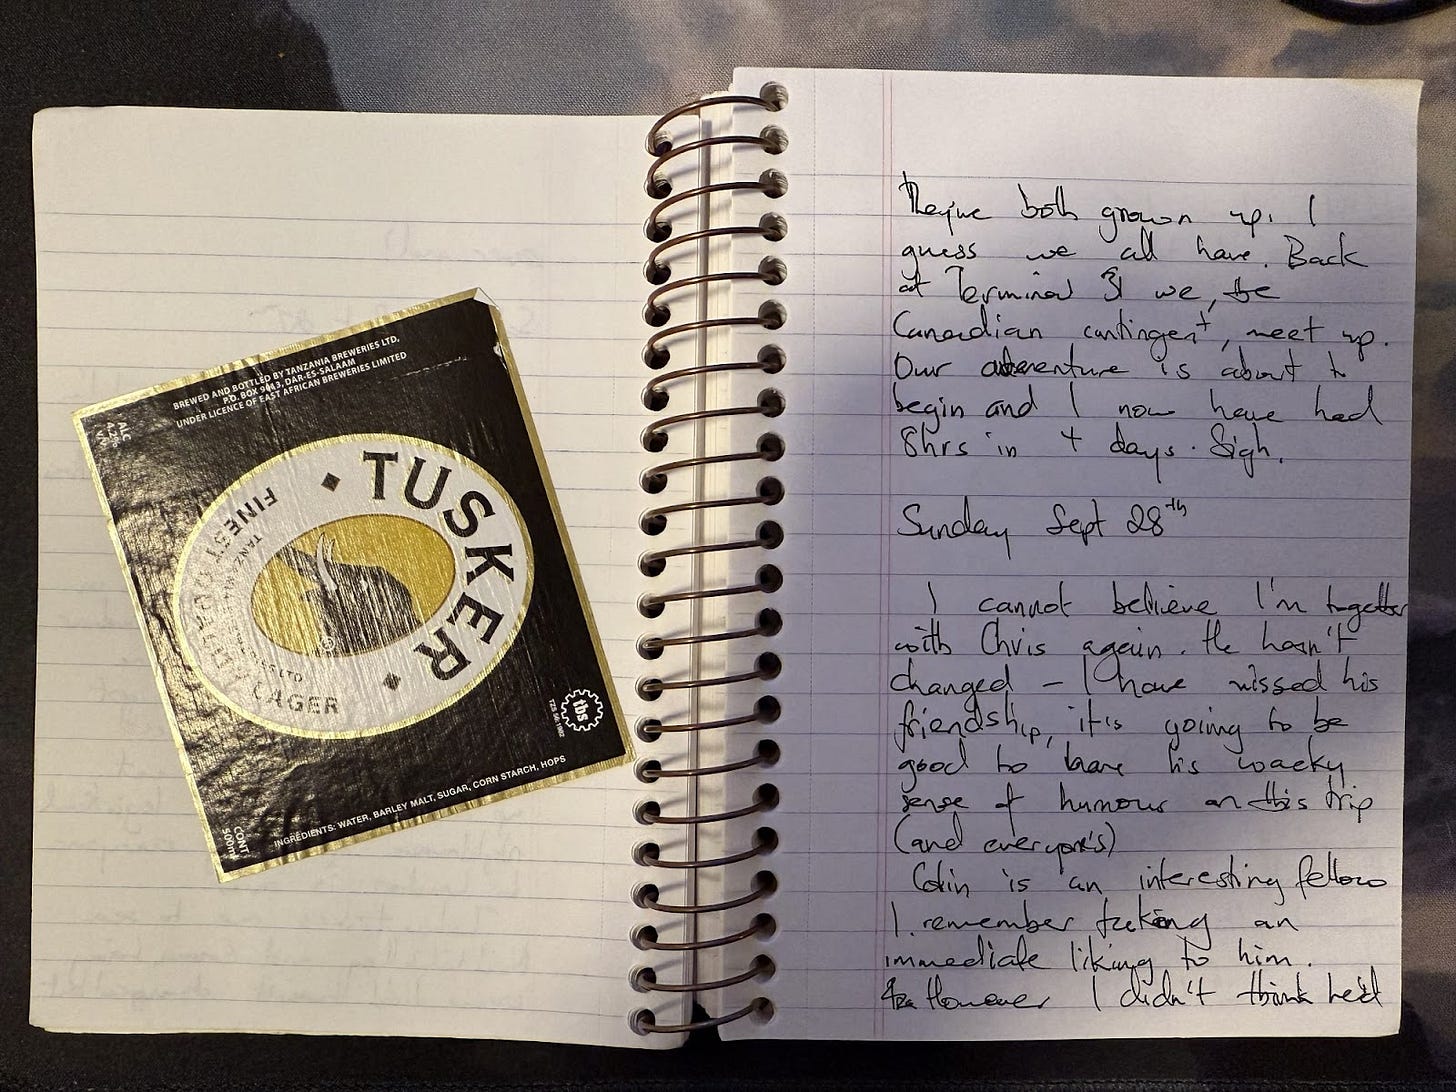 BREWED AND BOTTLED BY TANZANIA BREWERIES LTD,
P.O. BOX 9013, DAR-ES-SALAAM
UNDER LICENCE OF EAST AFRICAN BREWERIES LIMITED
ALC
4.2%
V/V
TUSKER
FINEST QUALITY
LAGER
tbs
INGREDIENTS: WATER, BARLEY MALT, SUGAR, CORN STARCH, HOPS
CONT
500ml
They've both grown up. I
guess we all have. Back
at Terminal 3 we, the
Canadian contingent, meet up.
Our adventure is about to
begin and I now have had
8hrs in 4 days. Sigh.
Sunday Sept 28th
I cannot believe I'm together
with Chris again. He hasn't
changed – I have missed his
friendship, it is going to be
good to have his wacky
sense of humour on this trip
(and everyone's)
Colin is an interesting fellow
I remember taking an
immediate liking to him.
However I didn't think he'd